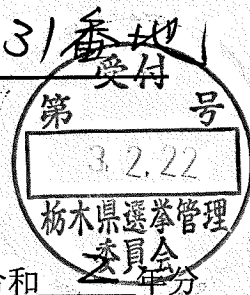 31番地
受付
第 号
3.2.22
栃木県選挙管理
委員会
和 2 年分